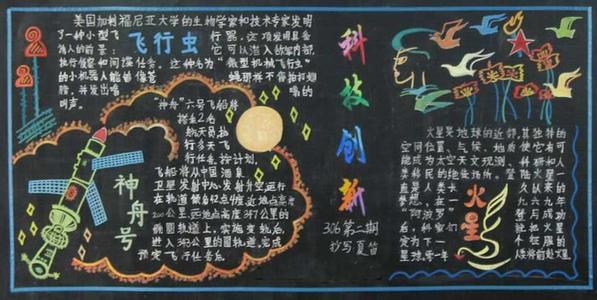 美国加利福尼亚大学的生物学家和技术专家发明
了一种小型飞行器。这项发明具备
诱人的前景:它可以潜入的军内部,
执行侦察和间谍任务。这种名为“微型机械飞行虫”
的小机器人能够像苍蝇那样不停拍打翅
膀,并发出嗡嗡的
叫声。
飞行虫
“神舟”六号飞船将
搭乘2名
航天员,
行多天飞
行任务。按计划,
飞船将从中国酒泉
卫星发射中心发射升空,运行
在轨道近地点高度
200公里、远地点高度347公里的
椭圆轨道上,实施变轨后,
进入343公里的圆轨道,完成
预定飞行任务后
神舟号
科技创新
306第二期
抄写 夏笛
火星是地球的近邻,其独特的
空间位置、气候、地质使它有可
能成为太空天文观测、科研和人
类移民的绝佳场所。登陆火星一
直是人类长久以来的
梦想。在一九六九年
“阿波罗”登月成功
后,科家们就把火星
定为下一个征服的
星球,
人类将前赴火星
火星